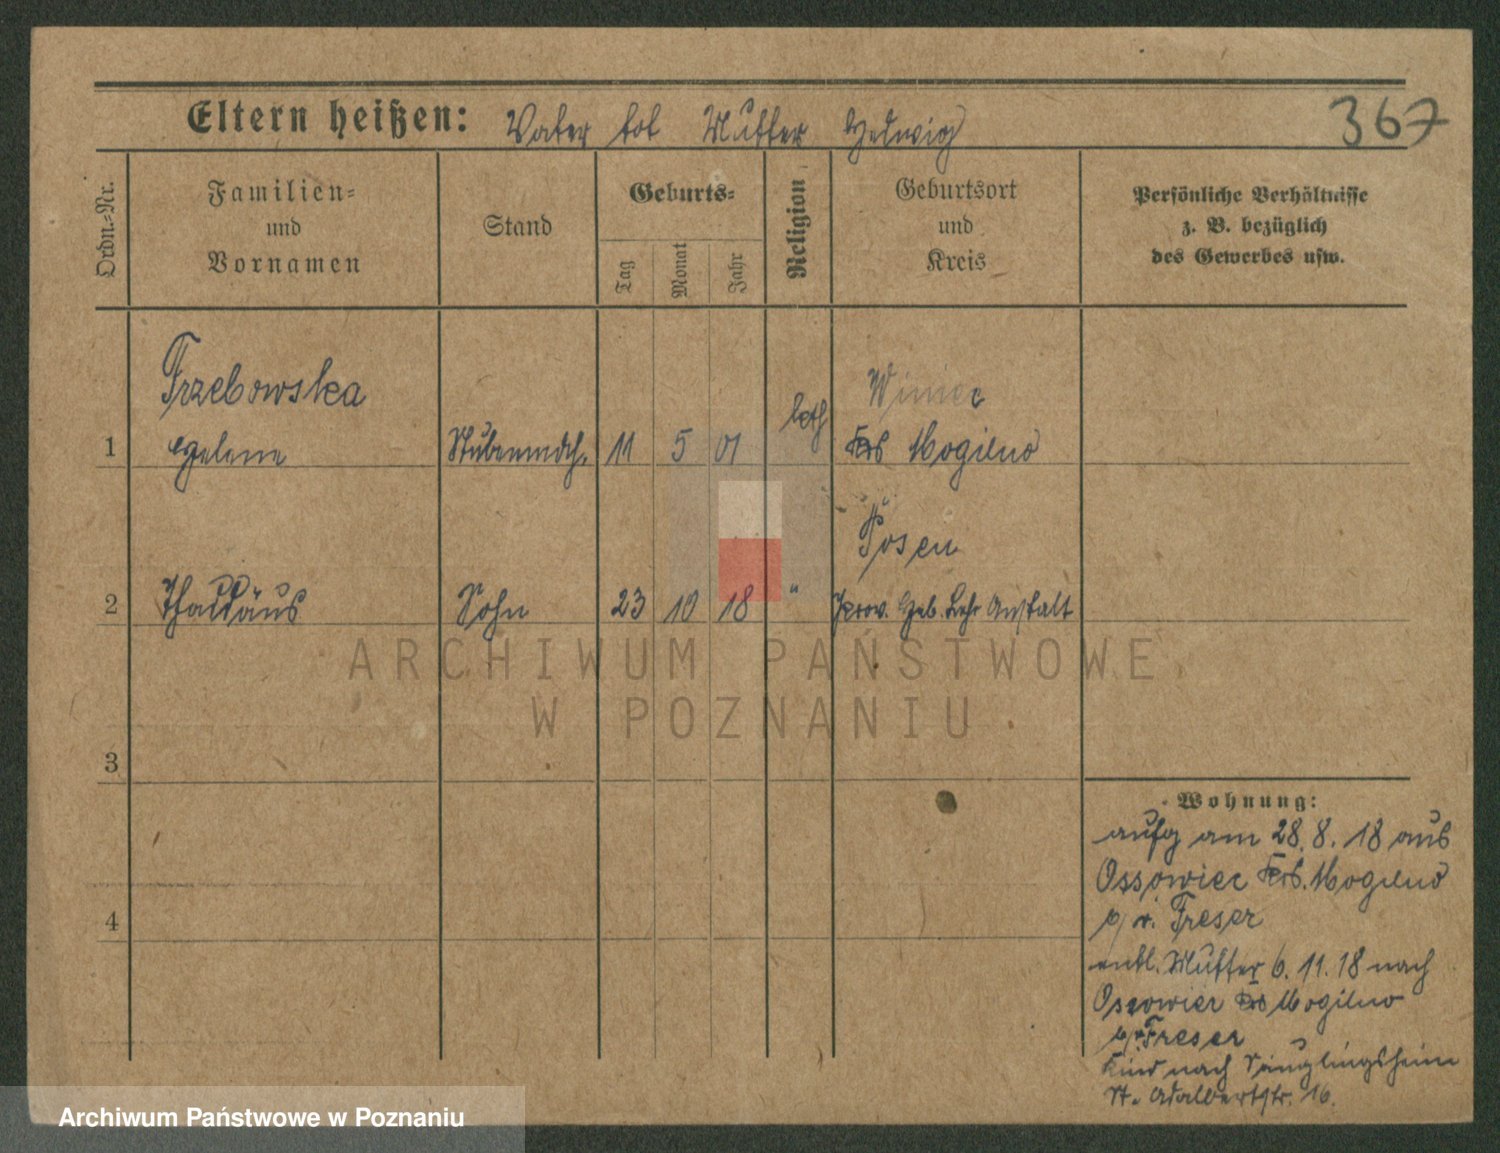 Eltern heißen: Vater tot Mutter Hedwig
367
Ordn.-Nr.
Familien-
und
Vornamen
Stand
Geburts-
Tag
Monat
Jahr
Religion
Geburtsort
und
Kreis
Persönliche Verhältnisse
z. B. bezüglich
des Gewerbes usw.
Trzebowska
Winiec
kath
1 Helene Stubenmdch. 11 5 01 Krs Mogilno
Posen
2 Thaddäus Sohn 23 10 18 " Prov. Geb. Lehr Anstalt
ARCHIWUM PAŃSTWOWE
W POZNANIU
3
Wohnung:
aufg am 28.8.18 aus
Ossowiec Krs. Mogilno
b/v. Treser
4
entl. Mutter 6.11.18 nach
Ossowiec Krs Mogilno
b/v. Treser
Kind nach Säuglingsheim
St. Adalbertstr. 16.
Archiwum Państwowe w Poznaniu